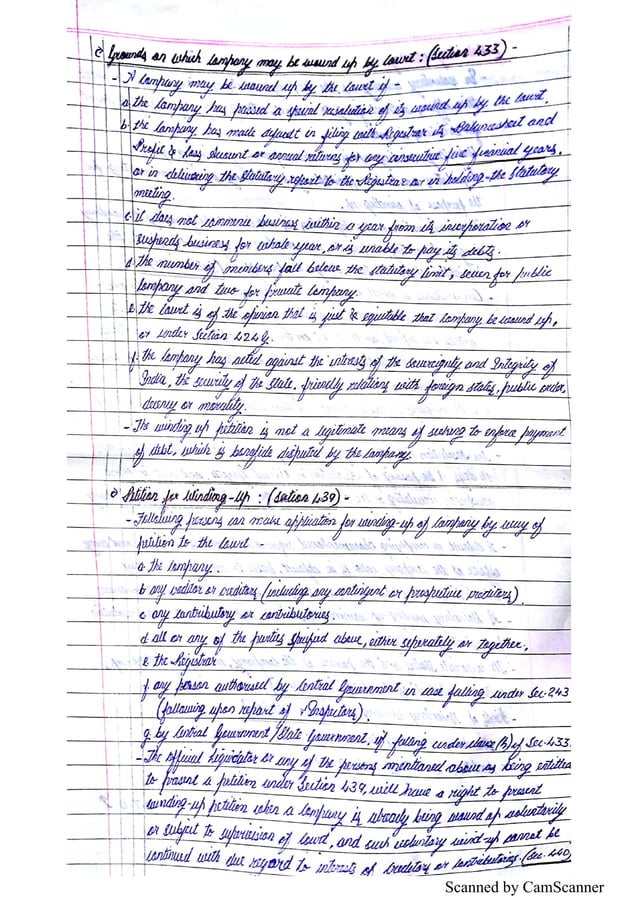 Grounds on which Company may be wound up by Court : (Section 433) -
- A Company may be wound up by the Court if -
a. the Company has passed a special resolution of its wound up by the Court.
b. the Company has made default in filing with Registrar its Balancesheet and
Profit & Loss Account or annual returns for any consecutive five financial years,
or in delivering the Statutory report to the Registrar or in holding the Statutory
meeting.
c. it does not commence business within a year from its incorporation or
suspends business for whole year, or is unable to pay its debts.
d. the number of members fall below the statutory limit, seven for public
Company and two for private Company.
e. the Court is of the opinion that is just & equitable that Company be wound up,
or under Section 424G.
f. the Company has acted against the interests of the sovereignty and Integrity of
India, the security of the State, friendly relations with foreign states, public order,
decency or morality.
- The winding up petition is not a legitimate means of seeking to enforce payment
of debt, which is bonafide disputed by the Company.
Petition for Winding-Up : (Section 439) -
- Following persons can make application for winding-up of Company by way of
petition to the Court -
a. the Company.
b. any creditor or creditors (including any contingent or prospective creditors).
c. any contributory or contributories.
d. all or any of the parties specified above, either seperately or together.
e. the Registrar
f. any person authorised by Central Government in case falling under Sec-243
(following upon report of Inspectors).
g. by Central Government/State Government, if falling under clause (h) of Sec-433.
- The Official Liquidator or any of the persons mentioned above as being entitled
to present a petition under Section 439, will have a right to present
winding-up petition when a Company is already being wound up voluntarily
or subject to supervision of Court, and such voluntary wind-up cannot be
continued with due regard to interests of Creditors or Contributories. (Sec. 440)
Scanned by CamScanner